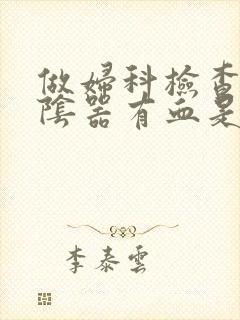 做婦科檢查
陰器有血是
李泰雲